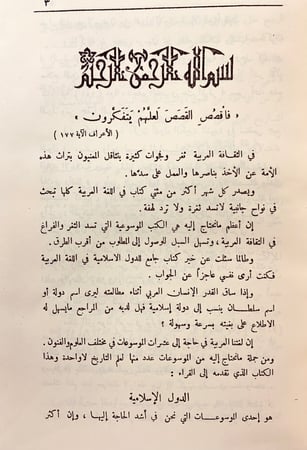 ٣
بسم الله الرحمن الرحيم
« فاقصُصِ القَصَصَ لعلَّهُمْ يَتَفكَّرُون »
( الأعراف الآية ١٧٧ )
في الثقافة العربية ثغر وفجوات كثيرة يتثاقل المعنيون بتراث هذه
الأمة عن الأخذ بناصرها والعمل على سدّها.
ويصدر كل شهر أكثر من مئتي كتاب في اللغة العربية كلها تبحث
في نواح جانبية لاتسد ثغرة ولا ترد لهفة.
إن أعظم مانحتاج إليه هي الكتب الموسوعية التي تسد الثغر والفراغ
في الثقافة العربية ، وتسهل السبل للوصول إلى المطلوب من أقرب الطرق.
وطالما سئلت عن خير كتاب جامع للدول الاسلامية في اللغة العربية
فكنت أرى نفسي عاجزاً عن الجواب .
وإذا ساق القدر الإنسان العربي أثناء مطالعته ليرى اسم دولة أو
اسم سلطان ينسب إلى دولة إسلامية فهل لديه من المراجع مايسهل له
الاطلاع على بغيته بسرعة وسهولة ؟
إن لغتنا العربية في حاجة إلى عشرات الموسوعات في مختلف العلوم والفنون .
ومن جملة مانحتاج إليه من الموسوعات عدد منها لعلم التاريخ لاواحدة وهذا
الكتاب الذي نقدمه إلى القراء :
الدول الإسلامية
هو إحدى الموسوعات التي نحن في أشد الحاجة إليها ، وإن أكثر